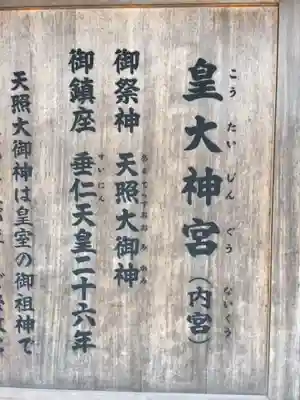 皇大神宮（内宮）
こうたいじんぐう ないくう
御祭神 天照大御神
あまてらすおおみかみ
御鎮座 垂仁天皇二十六年
すいにん
天照大御神は皇室の御祖神で